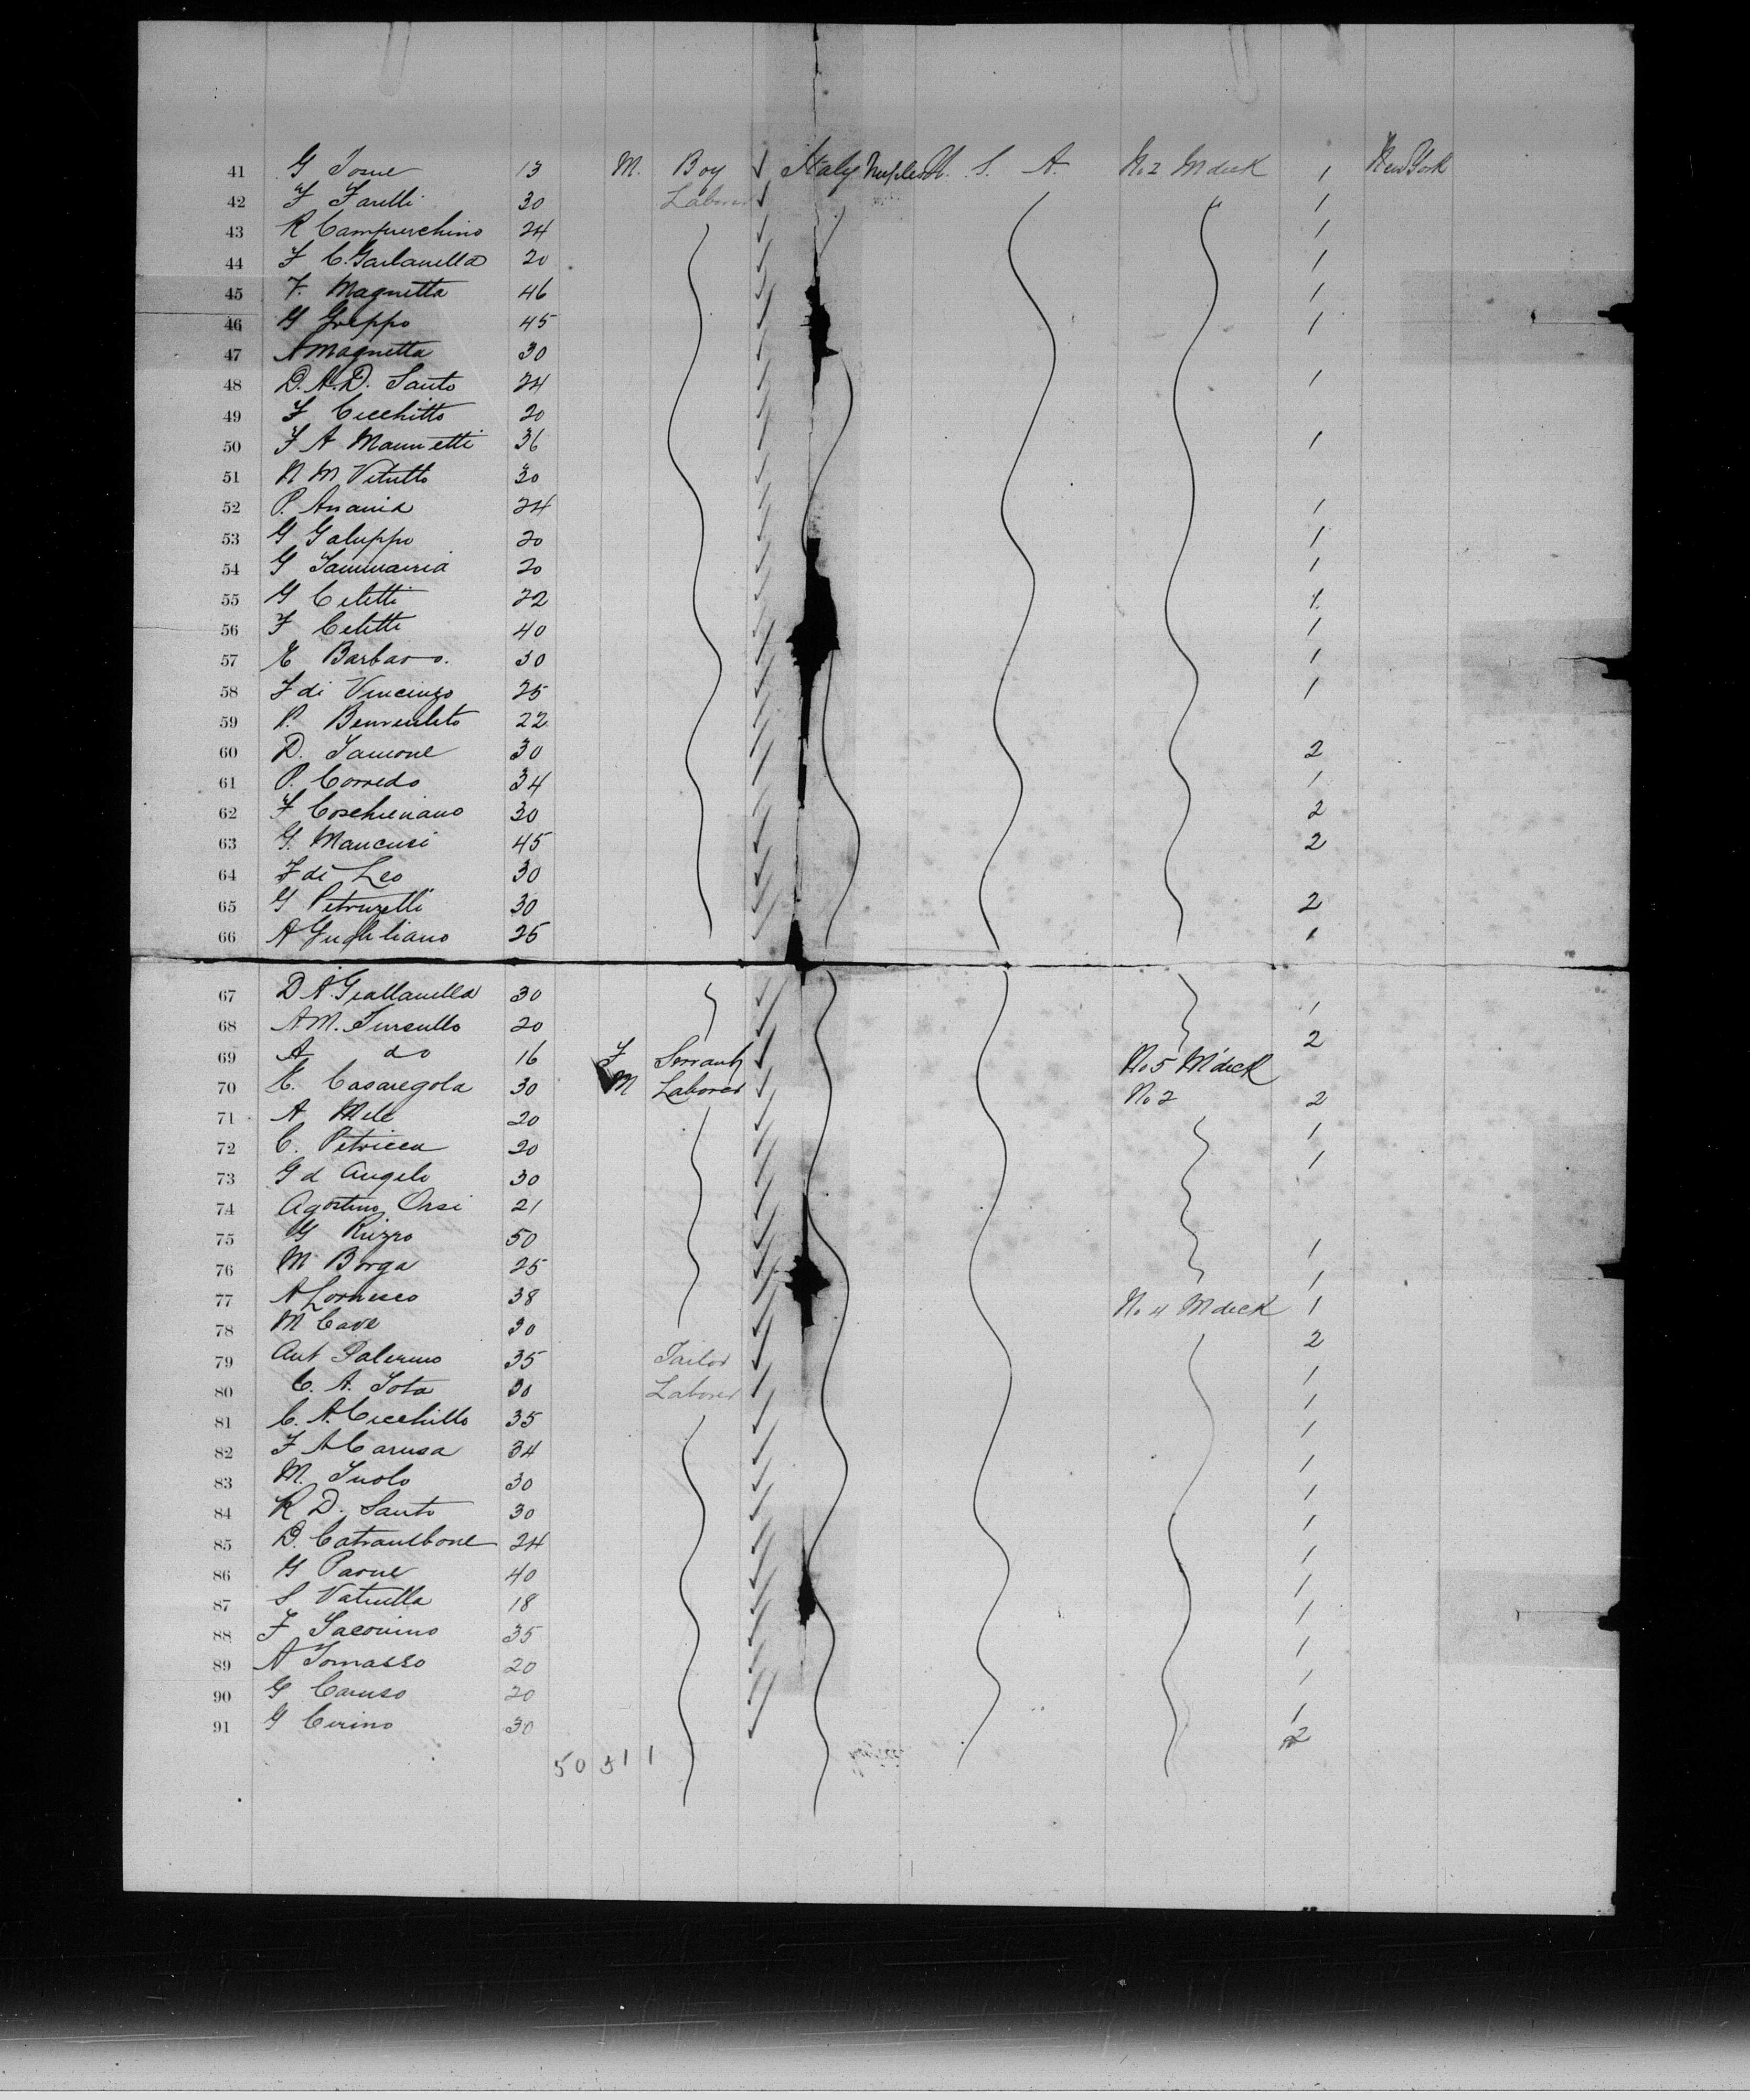 41 G Iosue 13 M. Boy ✓ Italy Naples U. S. A. No 2 M deck 1 New York
42 F Farelli 30 Laborer ✓ 1
43 R 24 ✓ 1
44 F C. 20 ✓ 1
45 F. Magnetta 46 ✓ 1
46 G Greppo 45 ✓ 1
47 A Magnetta 30 ✓
48 D. A. D. Santo 24 ✓ 1
49 F Cicchitto 20 ✓
50 F A Mannetti 36 ✓ 1
51 N M Vitullo 30 ✓
52 P. Anania 24 ✓ 1
53 G Galuppo 20 ✓ 1
54 G 20 ✓ 1
55 G Celetti 22 ✓ 1
56 F Celetti 40 ✓ 1
57 E Barbaro. 30 ✓ 1
58 F di Vincenzo 25 ✓ 1
59 P. Benvenuto 22 ✓
60 D. Iamone 30 ✓ 2
61 P. Corredo 34 ✓ 1
62 F 30 ✓ 2
63 G. Mancusi 45 ✓ 2
64 F di Leo 30 ✓
65 G Petruzelli 30 ✓ 2
66 A Gugliliano 25 ✓ 1
67 D A. Giallanella 30 ✓ 1
68 A M. 20 ✓ 2
69 A do 16 F Servant ✓ No 5 M deck
70 E. Casaregola 30 M Laborer ✓ No 2 2
71 A Mele 20 ✓ 1
72 C. Petricca 20 ✓ 1
73 G d Angelo 30 ✓
74 Agostino Orsi 21 ✓
75 G Rizzo 50 ✓ 1
76 M Borga 25 ✓ 1
77 A 38 ✓ No 4 M deck 1
78 M Cave 30 ✓ 2
79 Ant Palermo 35 Tailor ✓ 1
80 C. A. Iota 30 Laborer ✓ 1
81 C. A. Cicchillo 35 ✓ 1
82 F A Carusa 34 ✓ 1
83 M. 30 ✓ 1
84 R D. Santo 30 ✓ 1
85 D. 24 ✓ 1
86 G Parne 40 ✓ 1
87 S Vatrella 18 ✓ 1
88 F Iacovino 35 ✓ 1
89 A Tomasso 20 ✓ 1
90 G Caruso 20 ✓ 1
91 G Cirino 30 ✓ 2
50 51 1